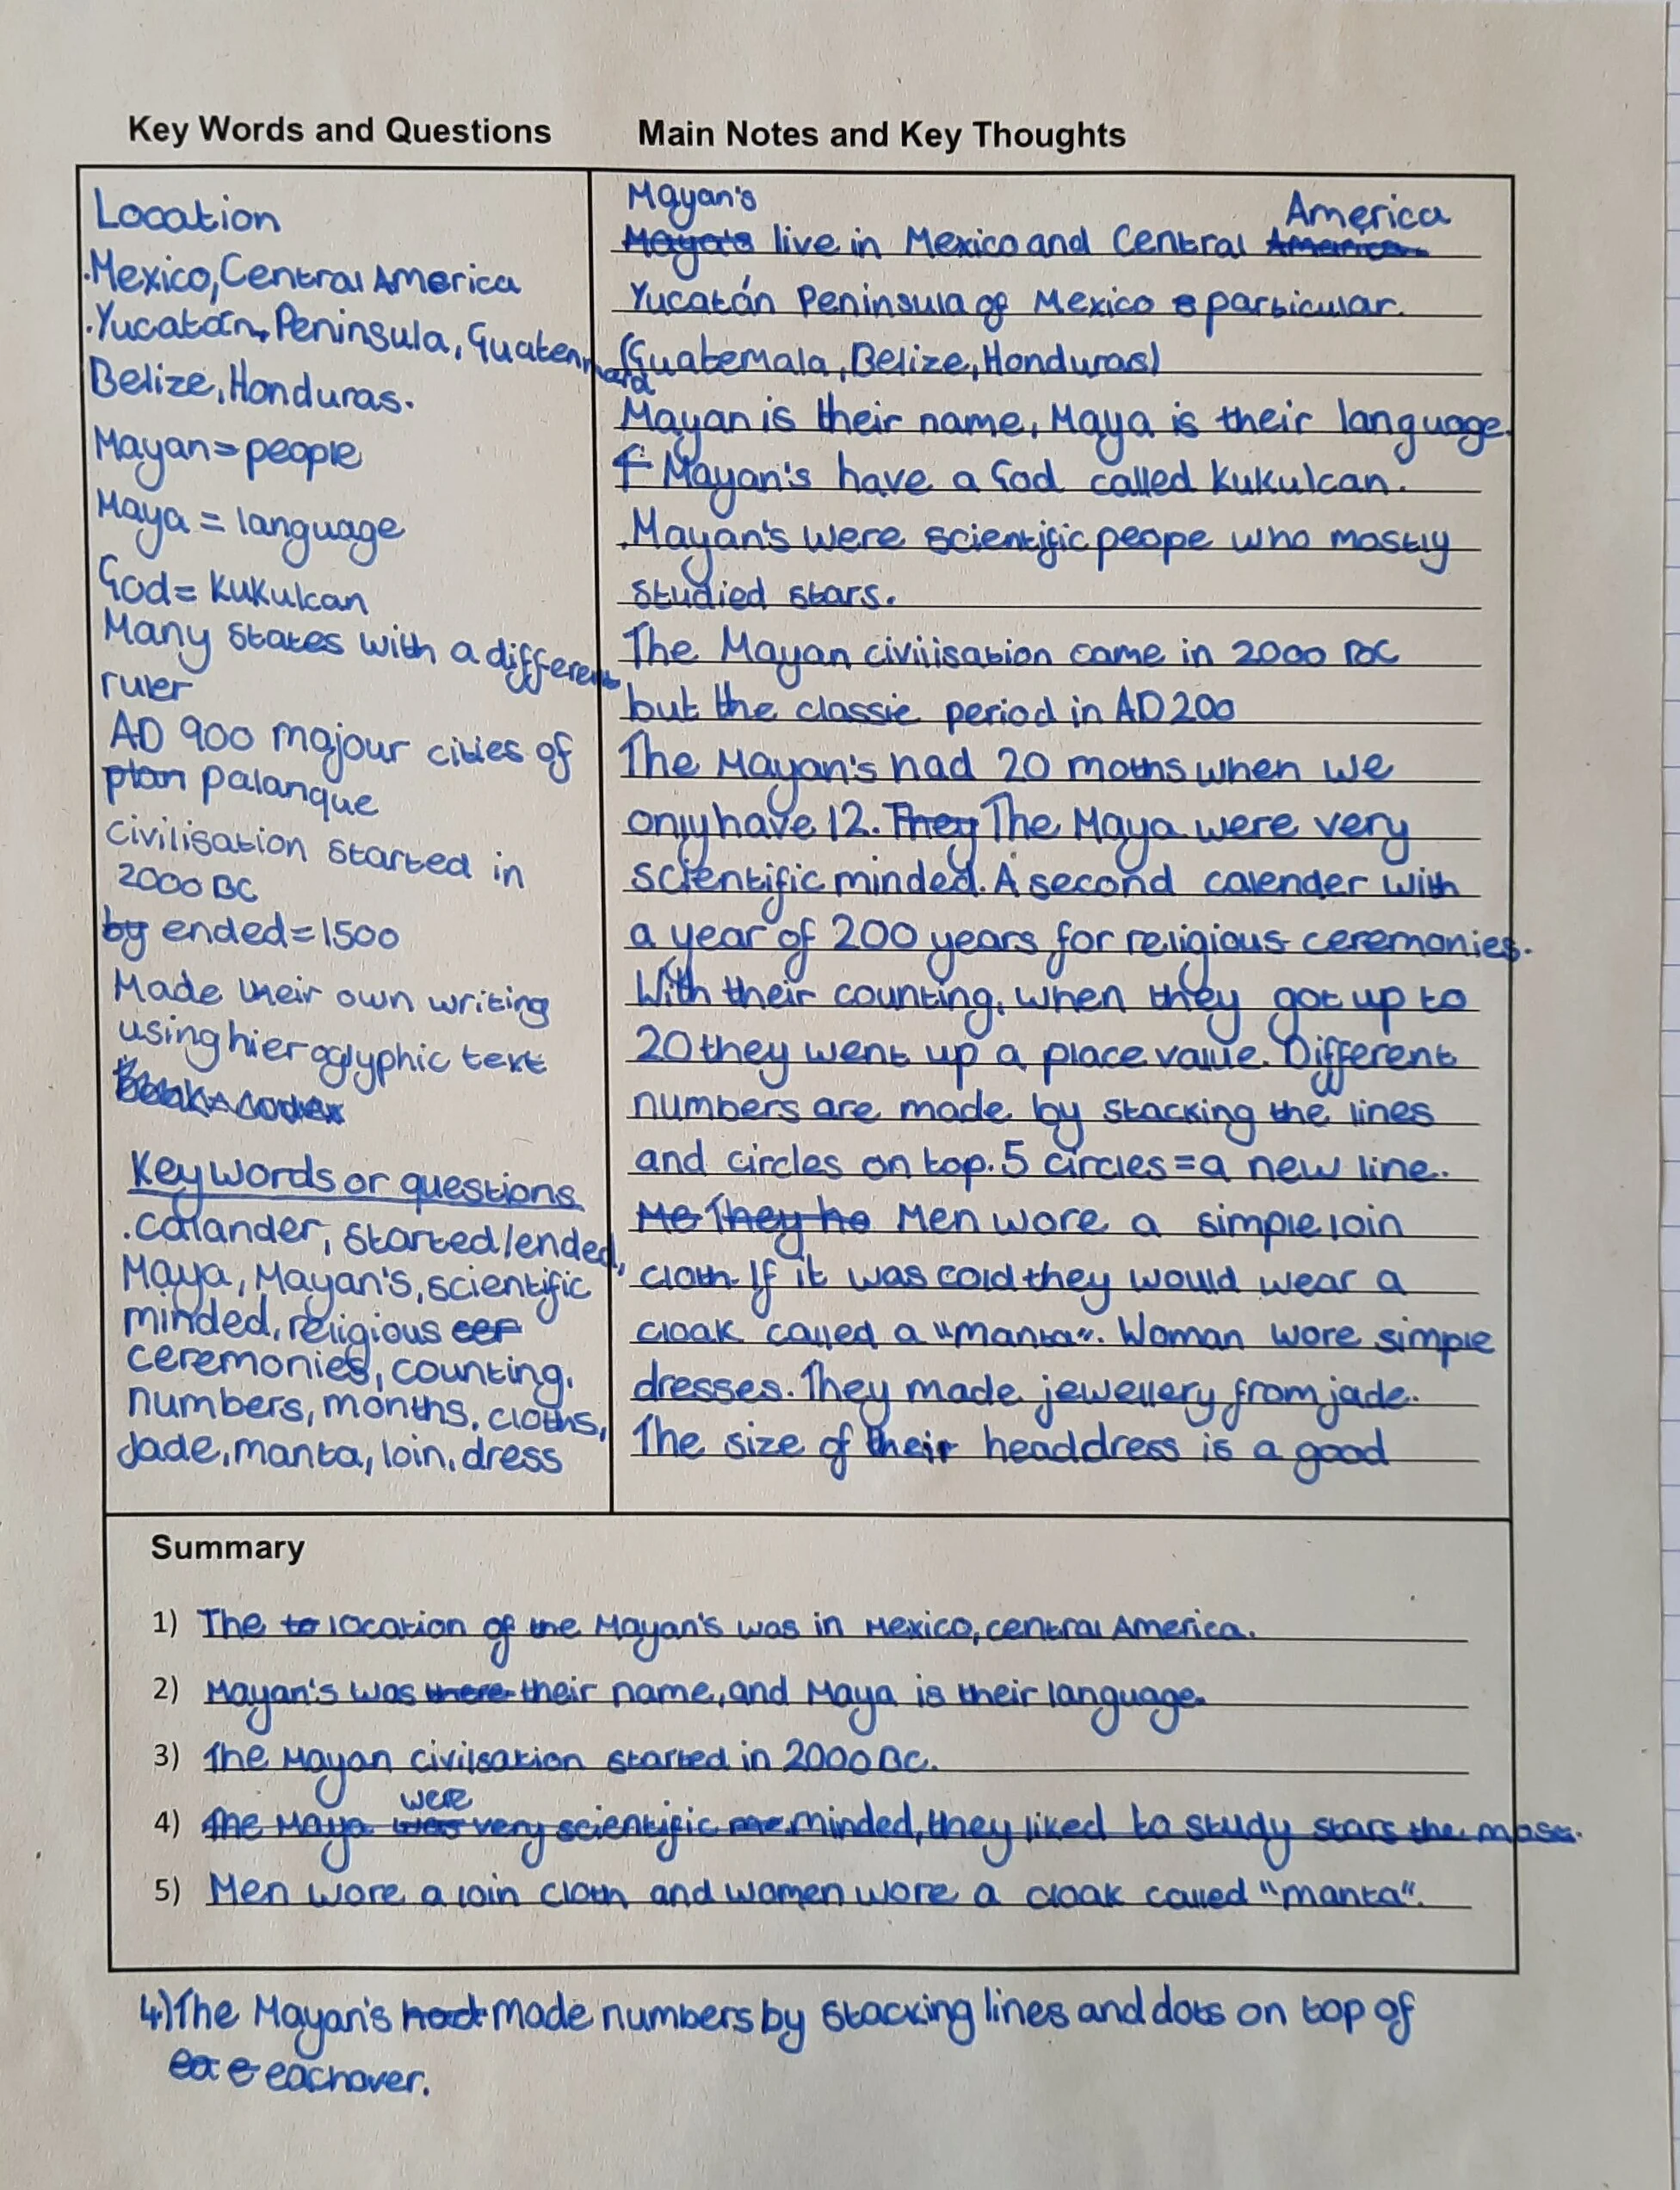 Key Words and Questions
Location
.Mexico, Central America
.Yucatán, Peninsula, Guatemmala
Belize, Honduras.
Mayan = people
Maya = language
God = Kukulcan
Many states with a different
ruler
AD 900 majour cities of
plan palanque
Civilisation started in
2000 BC
by ended = 1500
Made their own writing
using hieroglyphic text
Key words or questions
.calander, started/ended,
Maya, Mayan's, scientific
minded, religious cer
ceremonies, counting,
numbers, months, cloths,
Jade, manta, loin, dress
Main Notes and Key Thoughts
Mayan's America
live in Mexico and Central America
Yucatán Peninsula of Mexico particular.
(Guatemala, Belize, Honduras)
Mayan is their name, Maya is their language.
Mayan's have a God called Kukulcan.
.Mayan's were scientific peope who mostly
studied stars.
The Mayan civilisation came in 2000 BC
but the classic period in AD 200
The Mayan's had 20 moths when we
only have 12. They The Maya were very
scientific minded. A second calender with
a year of 200 years for religious ceremonies.
With their counting, when they got up to
20 they went up a place value. Different
numbers are made by stacking the lines
and circles on top. 5 circles = a new line.
Me They ho Men wore a simple loin
cloth. If it was cold they would wear a
cloak called a "manta". Woman wore simple
dresses. They made jewellery from jade.
The size of their headdress is a good
Summary
1) The to location of the Mayan's was in Mexico, central America.
2) Mayan's was there their name, and Maya is their language.
3) The Mayan civilsation started in 2000 BC.
were
4) The Maya was very scientific me minded, they liked to study stars the most.
5) Men wore a loin cloth and women wore a cloak called "manta".
4) The Mayan's had made numbers by stacking lines and dots on top of
ea e eachover.